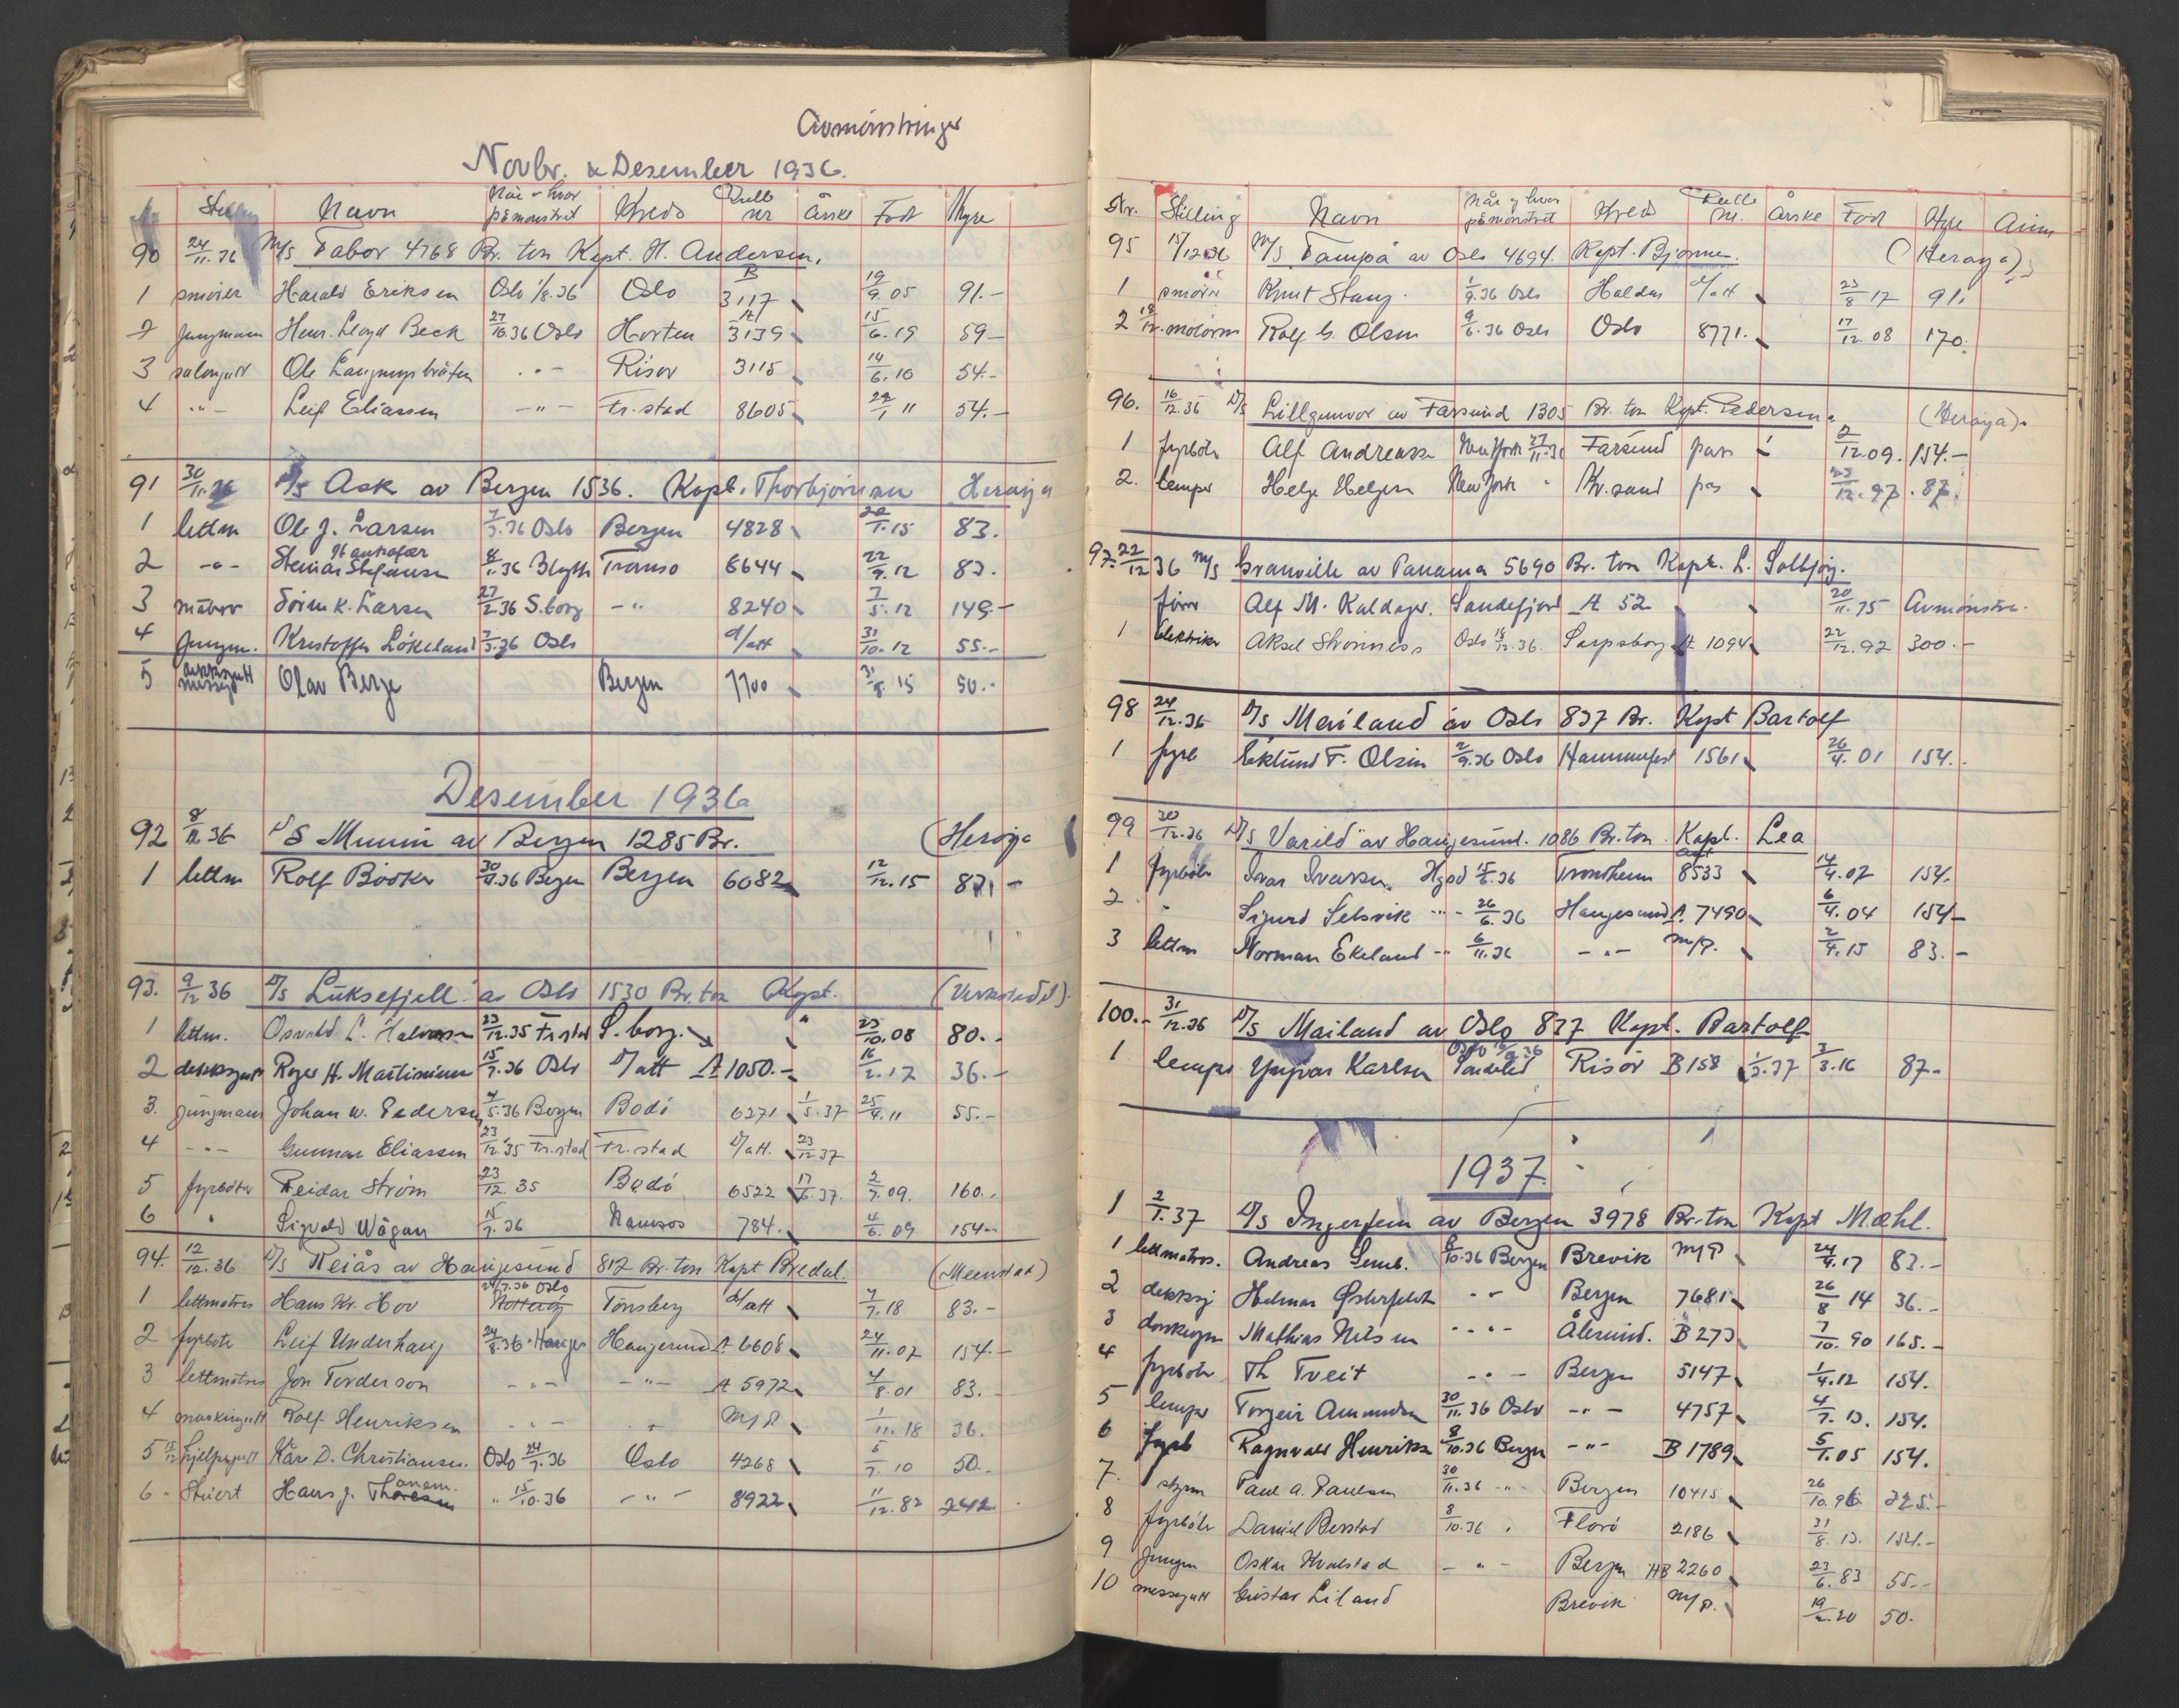 Avmönstringer
Novbr. & Desember 1936.
Navn När - hvor påmönstret Kreds Rulle nr Årske Födt Hyre
90 24/11.36 M/S Tabor 4768 Br. ton Kapt. H. Andersen.
1 smörer Harald Eriksen Oslo 1/8.36 Oslo B 3117 19/9.05 91.-
2 jungmann Henr. Lloyd Beck 27/10.36 Oslo Horten A 3139 15/6.19 59-
3 salongutt Ole -"- Risör 3115 14/6.10 54.-
4 -"- Leif Eliassen -"- Fr.stad 8605 29/1 11 54.-
91 30/11.36 D/S Ask av Bergen 1536. Kapt. Thorbjörnsen Heröya
1 lettm Ole J. Larsen 7/3.36 Oslo Bergen 4828 20/1.15 83.
2 -"- Steinar Stefansen 8/1.36 Blyth Tromsö 6644 22/9.12 83.
3 matros Sören K. Larsen 27/2.36 S.borg -"- 8240 7/5.12 149-
4 Jungm. Kristoffer Lökeland 7/3.36 Oslo d/att 31/10.12 55.-
5 messeg Olav Berge Bergen 7700 15 50.-
Desember 1936
92 8/12.36 D/S Munin av Bergen 1285 Br. (Heröya
1 lettm Rolf Böoker 30/11.36 Bergen Bergen 6082 12/12.15 83,-
93. 9/12 36 D/S Luksefjell av Oslo 1530 Br.ton Kapt. (Verkstedet).
1 lettm. Osvald L. Halvorsen 23/12.35 Fr.stad S.borg. 23/10.08 80.-
2 dekksgutt Roger H. Martinsen 15/7.36 Oslo D/att A 1050.- 16/2.17 36.-
3. jungmann Johan W. Pedersen 4/5.36 Bergen Bodö 6271 1/5.37 25/4.11 55.-
4 -"- Gunnar Eliassen 23/12.35 Fr.stad Fr.stad D/att. 23/12.37
5 fyrböter Reidar Ström 23/12.35 Bodö 6522 17/6.37. 2/7.09. 160.-
6 " Sigvald Wågan 15/7.36 Namsos 784. 4/6.09 154.-
94. 12/12.36 D/S Reiås av Haugesund 812 Br. ton Kapt Bredal. (Menstad)
1 lettmatros Hans Kr. Hov 24/7.36 Oslo Tönsberg d/att 7/7.18 83.-
2 fyrböter Leif Underhaug 24/8.36 Hauges Haugesund A 6608 24/11.07 154.-
3 lettmatros Jon Torderson -"- -"- A 5972 4/8.01 83.-
4 maskingutt Rolf Henriksen -"- -"- M/P. 1/11.18 36.-
5 15/12 hjelpegutt Kåre D. Christiansen. Oslo 24/7.36 Oslo 4268 6/7.10 50.-
6 " Stuert Hans J. Thanem. " 15/10.36 -"- 8922 11/12.82 242
Nr. Stilling Navn När og hvor påmönstret Kreds Rulle nr. Årske Född Hyre Anm
95 15/12 36 M/S Tampa av Oslo 4694. Kapt. Bjönnes. (Heröya)
1 smörer Knut Stang. 1/9.36 Oslo Halden d/att 23/8 17 91.
2 19/12. motorm Rolf G. Olsen 9/6.36 Oslo Oslo 8771. 17/12.08 170.
96. 16/12.36 D/S Lillgunvor av Farsund 1305 Br. ton Kapt. Pedersen. (Heröya).
1 fyrböter Alf Andreassen New York 27/11.36 Farsund pass 2/12.09. 154.-
2. lemper Helge Helgesen New York " Kr.sand pas 25/12.97. 87.
97. 22/12 36 M/S Granville av Panama 5690 Br. ton Kapt. L. Solbjörg.
Alf M. Kaldager. Sandefjord A 52 20/11.75 Avmönstre.
1 Elektriker Aksel Strömness Oslo 18/12.36. Sarpsborg A 1094 22/12.92 300.-
98 24/12.36 D/S Mailand av Oslo 837 Br. Kapt Bartolf
1 fyrb Eklund F. Olsen 2/9.36 Oslo Hammerfest 1561 26/4.01 154.-
99 30/12.36 D/S Varild av Haugesund. 1086 Br. ton. Kapt. Lea
1 fyrböter Ivar Iversen. Hgsd 15/6.36 Trondheim 8533 14/4.07 154.
2 " Sigurd Selsvik -"- 26/6.36 Haugesund A. 7490 6/4.04 154-
3 lettm Norman Ekeland -"- 6/11.36 -"- M/P. 2/4.15 83.-
100.- 31/12.36 D/S Mailand av Oslo 837 Kapt. Bartolf
1 lemper Yngvar Karlsen Oslo Risör B 158 1/3.37 3/3.16 87-
1937.
1 2/1.37 D/S Ingerfem av Bergen 3978 Br.ton Kapt Mæhl.
1 lettmatros. Andreas Semb. 8/10.36 Bergen Brevik M/P 24/4.17 83.-
2 dekksg Helmer Østerfeldt -"- Bergen 7681 26/8 14 36.-
3 donkeym Mathias Nilsen -"- Ålesund. B 273 7/10.90 165.-
4 fyrböter Th Tveit -"- Bergen 5147 1/4.12 154.
5 lemper Torgeir Amundsen 30/11.36 Oslo -"- 4757 4/7.13. 154.
6 fyrb Ragnvald Henriksen 8/10.36 Bergen -"- B 1789 5/1.05 154.
7. styrm Paul A. Paulsen 30/11.36 -"- Bergen 10415 26/10.96 325.-
8 fyrböter Daniel Berstad 8/10.36 " Florö 2186 31/8.13. 154.-
9 Jungm Oskar Kvalstad -"- Bergen HB 2260 23/6.83 55.-
10 messegutt Gustav Liland Brevik M/P. 19/2.20 50.